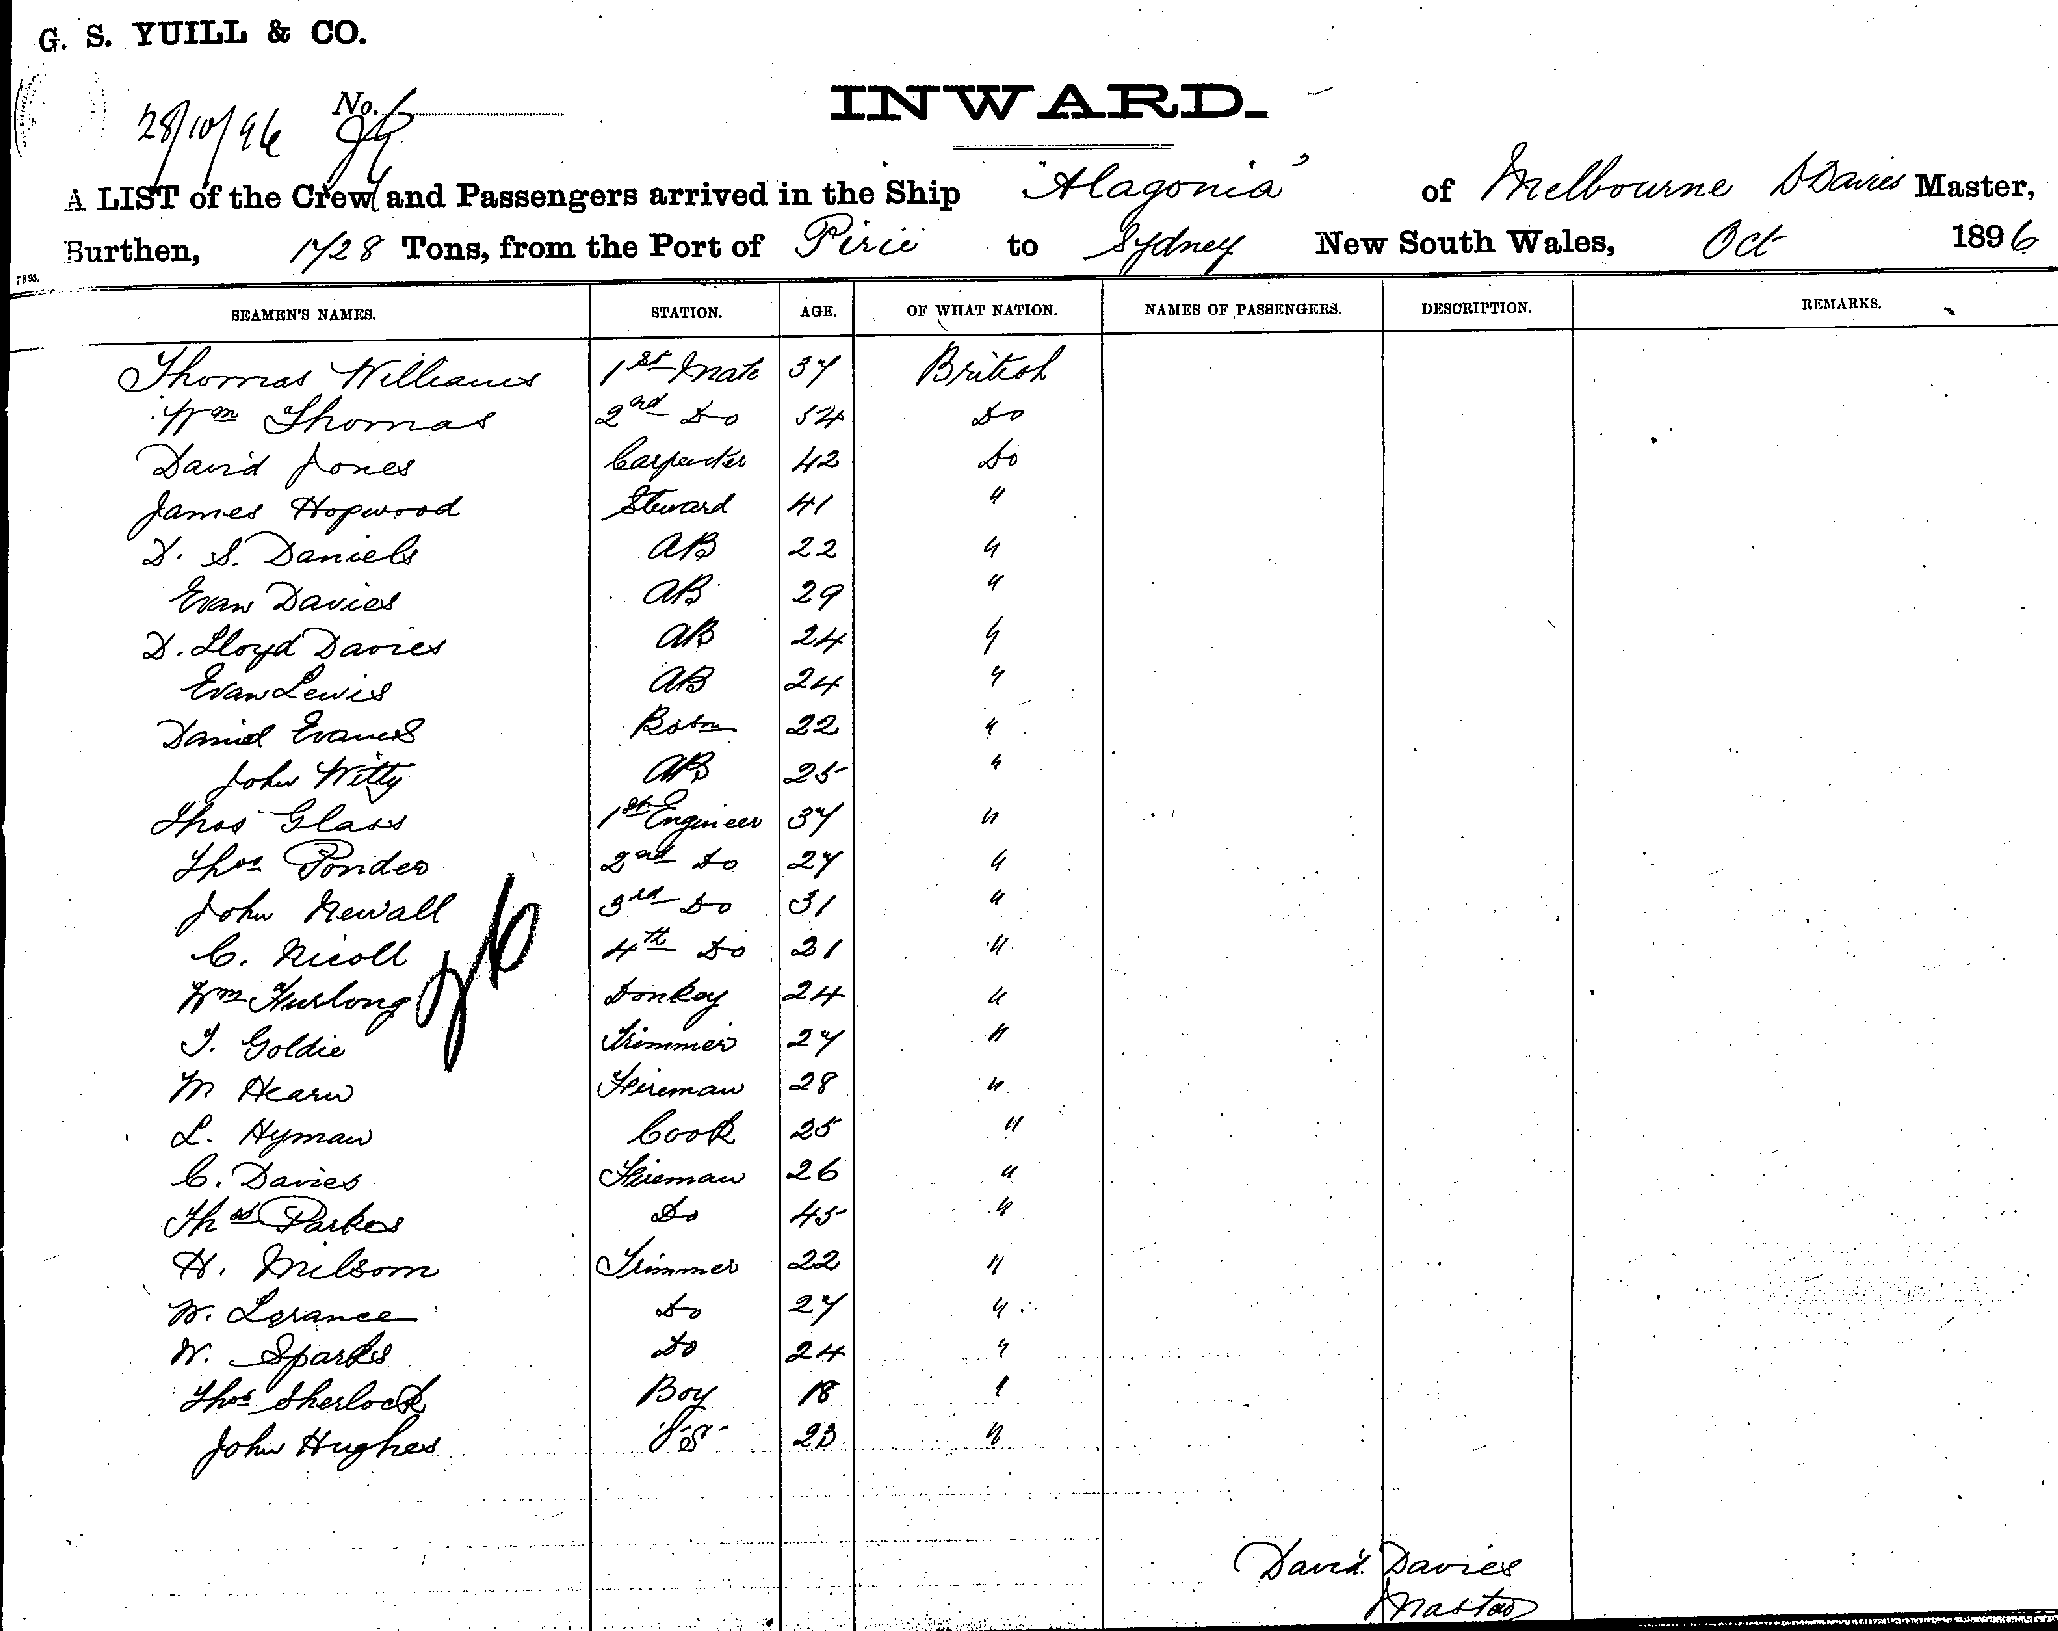 G. S. YUILL & CO.
28/10/96 No.
INWARD.
A LIST of the Crew and Passengers arrived in the Ship "Alagonia" of Melbourne D Davies Master,
Burthen, 1728 Tons, from the Port of Pirie to Sydney New South Wales, Oct 1896
SEAMEN'S NAMES. STATION. AGE. OF WHAT NATION. NAMES OF PASSENGERS. DESCRIPTION. REMARKS.
Thomas Williams 1st Mate 37 British
Wm Thomas 2nd Do 54 Do
David Jones Carpenter 42 Do
James Hopwood Steward 41 "
D. S. Daniels AB 22 "
Evan Davies AB 29 "
D. Lloyd Davies AB 24 "
Evan Lewis AB 24 "
Daniel Evans Bosn 22 "
John Witty AB 25 "
Thos Glass 1st Engineer 37 "
Thos Ponder 2nd Do 27 "
John Newall 3rd Do 31 "
C. Nicoll 4th Do 21 "
Wm Furlong Donkey 24 "
T. Goldie Trimmer 27 "
M Hearn Fireman 28 "
L. Hyman Cook 25 "
C. Davies Fireman 26 "
Thos Parkes Do 45 "
H. Milsom Trimmer 22 "
W. Lerance Do 27 "
W. Sparks Do 24 "
Thos Sherlock Boy 18 "
John Hughes 23 "
David Davies
Master